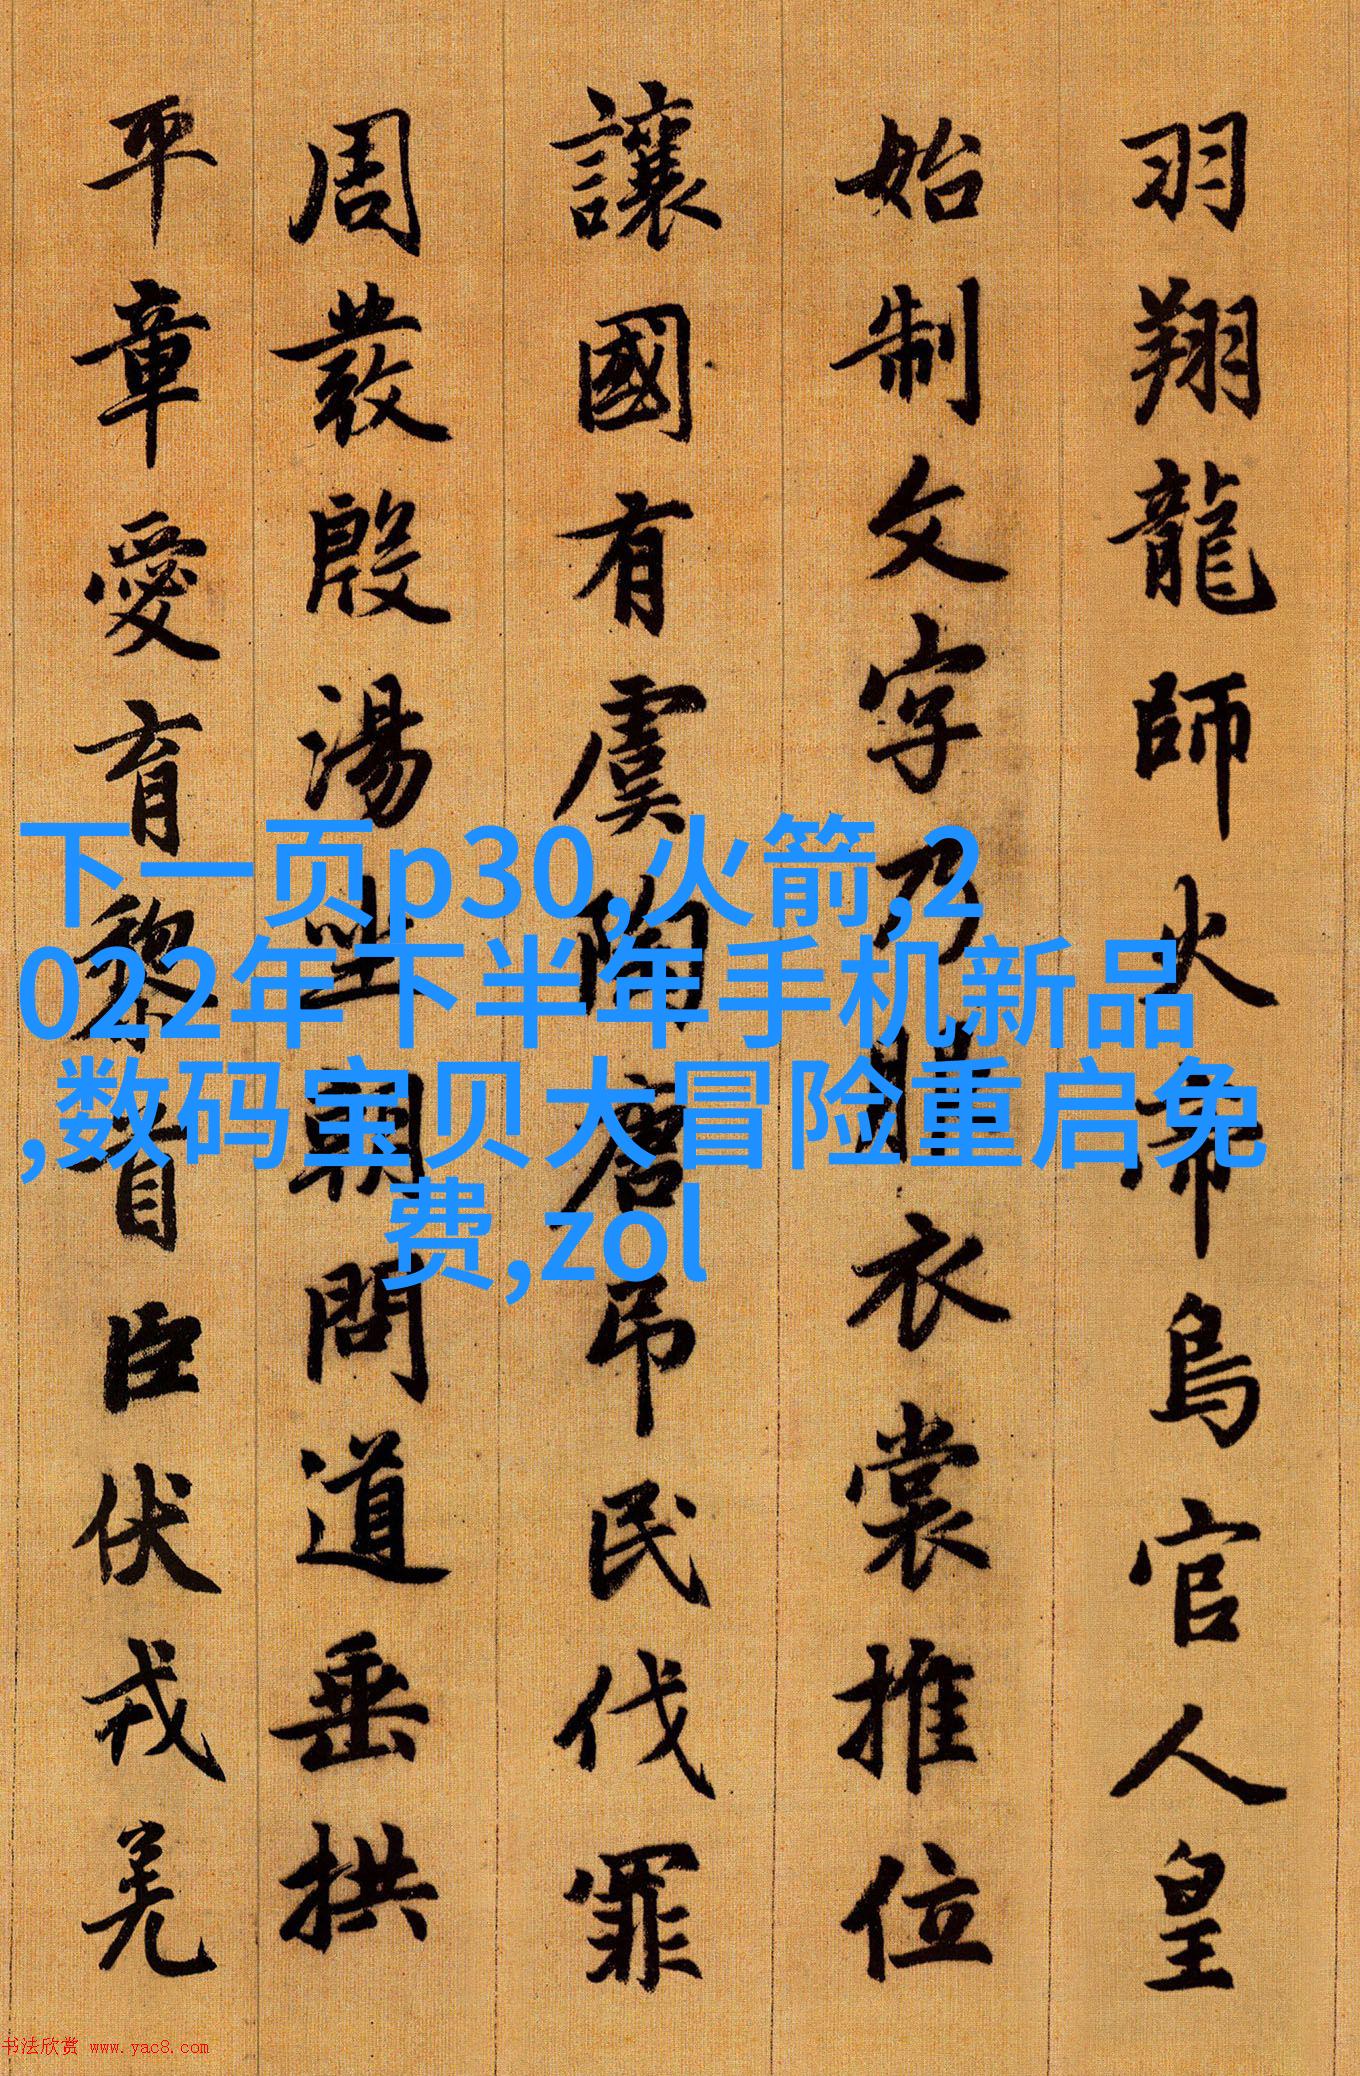 羽翔龍師火帝鳥官人皇
始制文字乃服衣裳推位
讓國有虞陶唐吊民伐罪
周發殷湯坐朝問道垂拱
平章愛育黎首臣伏戎羌
下一页p30,火箭,2
022年下半年手机新品
,数码宝贝大冒险重启免
费,zol
书法欣赏 www.yac8.com